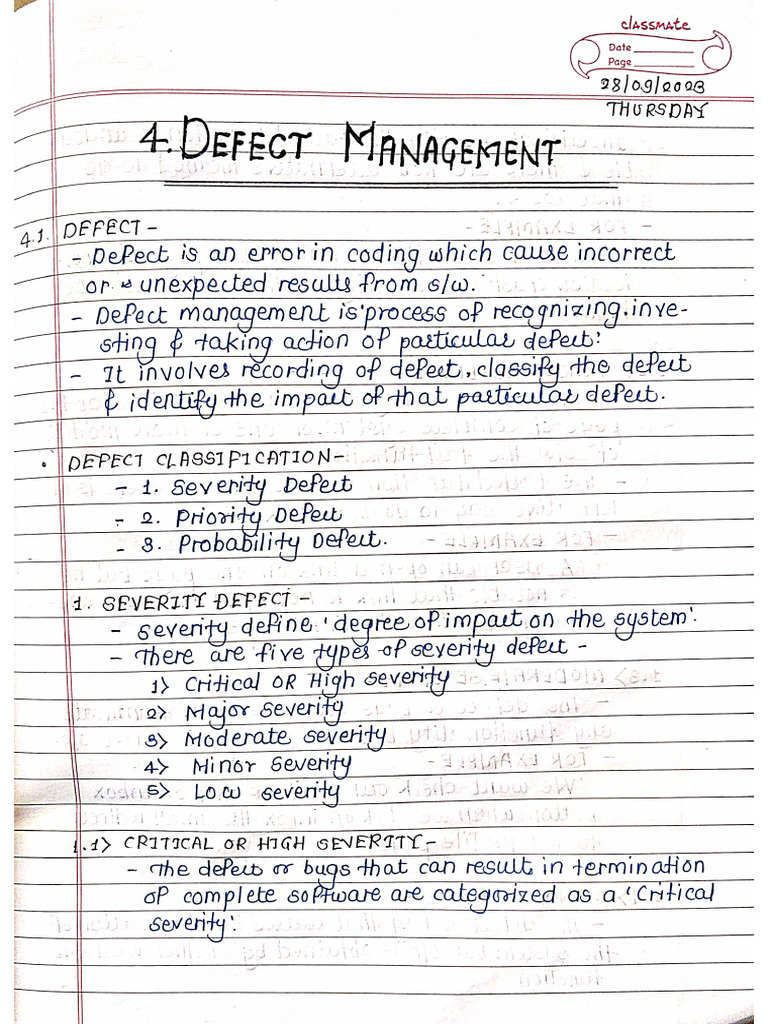 classmate
Date
Page
28/09/2023
THURSDAY
4. DEFECT MANAGEMENT
4.1. DEFECT -
- Defect is an error in coding which cause incorrect
or unexpected results from s/w.
- Defect management is process of recognizing, inve-
sting & taking action of particular defect:
- It involves recording of defect, classify the defect
& identify the impact of that particular defect.
• DEFECT CLASSIFICATION -
- 1. Severity Defect
- 2. Priority Defect
- 3. Probability Defect.
1. SEVERITY DEFECT -
- Severity define 'degree of impact on the system'.
- There are five types of severity defect -
1> Critical OR High severity
2> Major Severity
3> Moderate severity
4> Minor Severity
5> Low severity
1.1> CRITICAL OR HIGH SEVERITY -
- The defect or bugs that can result in termination
of complete software are categorized as a 'Critical
severity'.